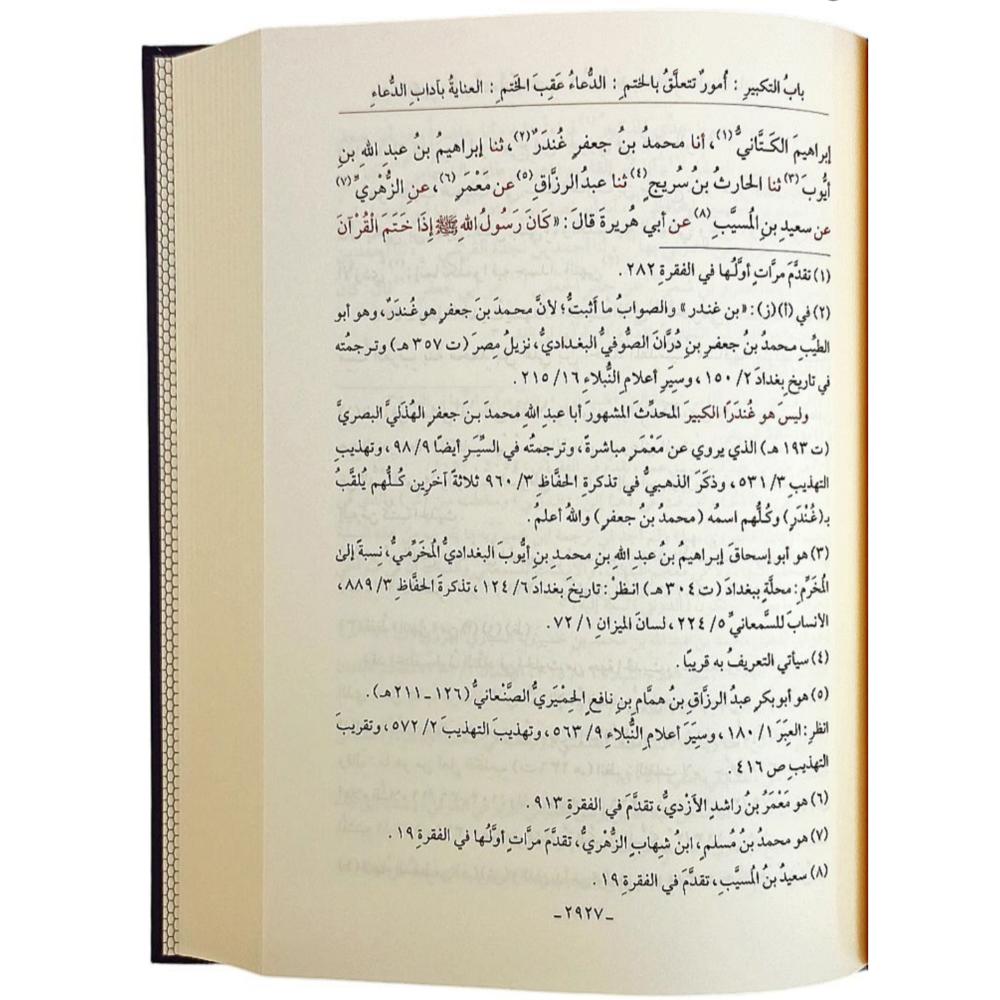 بابُ التكبيرِ : أُمورٌ تتعلَّقُ بالختمِ : الدُّعاءُ عَقِبَ الختمِ : العنايةُ بآدابِ الدُّعاءِ
إبراهيمَ الكَتَّانيُّ(١)، أنا محمدُ بنُ جعفرٍ غُندَرٌ(٢)، ثنا إبراهيمُ بنُ عبدِ اللهِ بنِ
أيُّوبَ(٣) ثنا الحارثُ بنُ سُريجٍ(٤) ثنا عبدُ الرزَّاقِ(٥) عن مَعْمَرٍ(٦)، عنِ الزُّهْرِيِّ(٧)
عن سعيدِ بنِ المُسيَّبِ(٨) عن أبي هُريرةَ قالَ : «كَانَ رَسُولُ اللهِ ﷺ إِذَا خَتَمَ الْقُرْآنَ
(١) تقدَّمَ مرَّاتٍ أوَّلُها في الفقرةِ ٢٨٢ .
(٢) في (أ)(ز): «بن غندر» والصوابُ ما أَثبتُّ؛ لأنَّ محمدَ بنَ جعفرٍ هو غُندَرٌ، وهو أبو
الطيِّبِ محمدُ بنُ جعفرِ بنِ دُرَّانَ الصُّوفيُّ البغداديُّ، نزيلُ مِصرَ (ت ٣٥٧ هـ) وترجمتُه
في تاريخِ بغدادَ ٢/ ١٥٠ ، وسِيَرِ أعلامِ النُّبلاءِ ١٦/ ٢١٥ .
وليسَ هو غُندَرًا الكبيرَ المحدِّثَ المشهورَ أبا عبدِ اللهِ محمدَ بنَ جعفرٍ الهُذَليَّ البصريَّ
(ت ١٩٣ هـ) الذي يروي عن مَعْمَرٍ مباشرةً، وترجمتُه في السِّيَرِ أيضًا ٩/ ٩٨ ، وتهذيبِ
التهذيبِ ٣/ ٥٣١ ، وذكَرَ الذهبيُّ في تذكرةِ الحفَّاظِ ٣/ ٩٦٠ ثلاثةً آخَرِين كلُّهم يُلقَّبُ
بـ(غُنْدَرٍ) وكُلُّهم اسمُه (محمدُ بنُ جعفرٍ) واللهُ أعلمُ .
(٣) هو أبو إسحاقَ إبراهيمُ بنُ عبدِ اللهِ بنِ محمدِ بنِ أيُّوبَ البغداديُّ المُخَرِّميُّ، نسبةً إلىٰ
المُخَرِّمِ: محلَّةٍ ببغدادَ (ت ٣٠٤ هـ) انظرْ: تاريخَ بغدادَ ٦/ ١٢٤ ، تذكرةَ الحفَّاظِ ٣/ ٨٨٩ ،
الأنسابَ للسَّمعانيِّ ٥/ ٢٢٤ ، لسانَ الميزانِ ١/ ٧٢ .
(٤) سيأتي التعريفُ به قريبًا .
(٥) هو أبو بكرٍ عبدُ الرزَّاقِ بنُ همَّامِ بنِ نافعٍ الحِمْيَريُّ الصَّنْعانيُّ (١٢٦ - ٢١١ هـ) .
انظرِ: العِبَرَ ١/ ١٨٠ ، وسِيَرَ أعلامِ النُّبلاءِ ٩/ ٥٦٣ ، وتهذيبَ التهذيبِ ٢/ ٥٧٢ ، وتقريبَ
التهذيبِ ص ٤١٦ .
(٦) هو مَعْمَرُ بنُ راشدٍ الأزْديُّ، تقدَّمَ في الفقرةِ ٩١٣ .
(٧) هو محمدُ بنُ مُسلمٍ، ابنُ شِهابٍ الزُّهْريُّ، تقدَّمَ مرَّاتٍ أوَّلُها في الفقرةِ ١٩ .
(٨) سعيدُ بنُ المُسيَّبِ، تقدَّمَ في الفقرةِ ١٩ .
-٢٩٢٧-